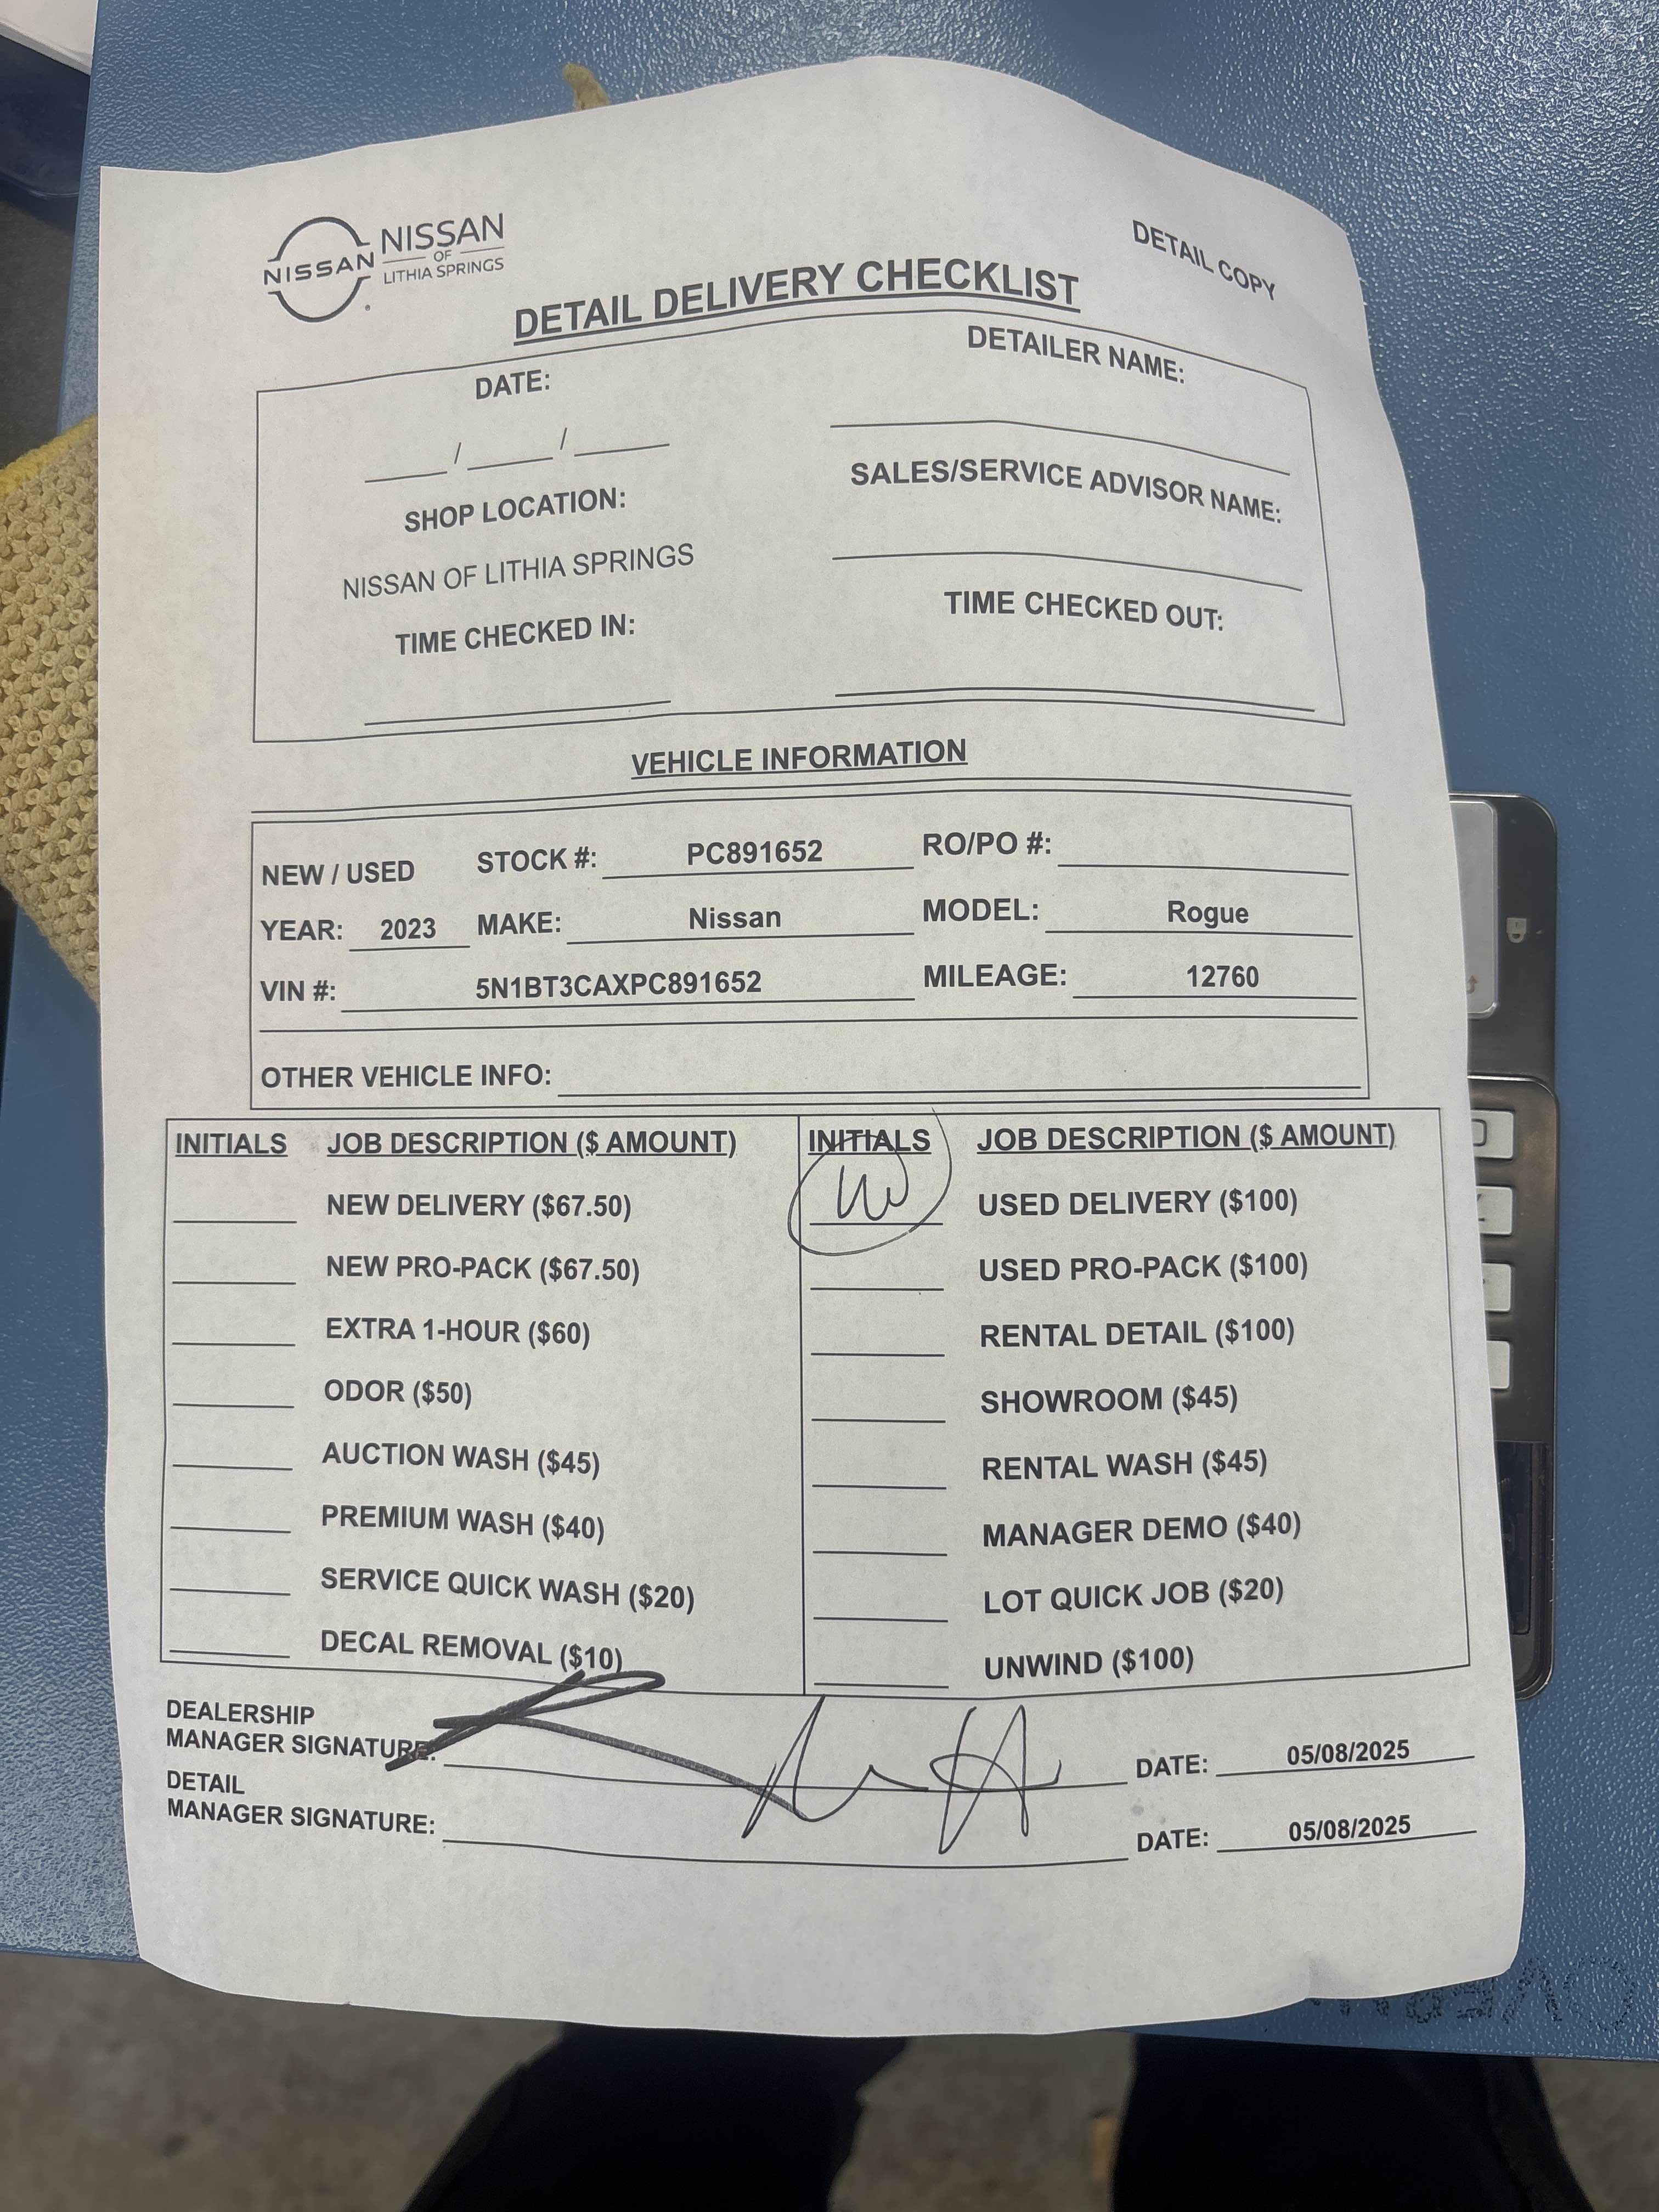 NISSAN
NISSAN
OF
LITHIA SPRINGS
DETAIL COPY
DETAIL DELIVERY CHECKLIST
DATE:
DETAILER NAME:
___/___/___
SALES/SERVICE ADVISOR NAME:
SHOP LOCATION:
NISSAN OF LITHIA SPRINGS
TIME CHECKED IN:
TIME CHECKED OUT:
VEHICLE INFORMATION
NEW / USED STOCK #: PC891652 RO/PO #:
YEAR: 2023 MAKE: Nissan MODEL: Rogue
VIN #: 5N1BT3CAXPC891652 MILEAGE: 12760
OTHER VEHICLE INFO:
INITIALS JOB DESCRIPTION ($ AMOUNT) INITIALS JOB DESCRIPTION ($ AMOUNT)
NEW DELIVERY ($67.50) USED DELIVERY ($100)
NEW PRO-PACK ($67.50) USED PRO-PACK ($100)
EXTRA 1-HOUR ($60) RENTAL DETAIL ($100)
ODOR ($50) SHOWROOM ($45)
AUCTION WASH ($45) RENTAL WASH ($45)
PREMIUM WASH ($40) MANAGER DEMO ($40)
SERVICE QUICK WASH ($20) LOT QUICK JOB ($20)
DECAL REMOVAL ($10) UNWIND ($100)
DEALERSHIP
MANAGER SIGNATURE: DATE: 05/08/2025
DETAIL
MANAGER SIGNATURE: DATE: 05/08/2025